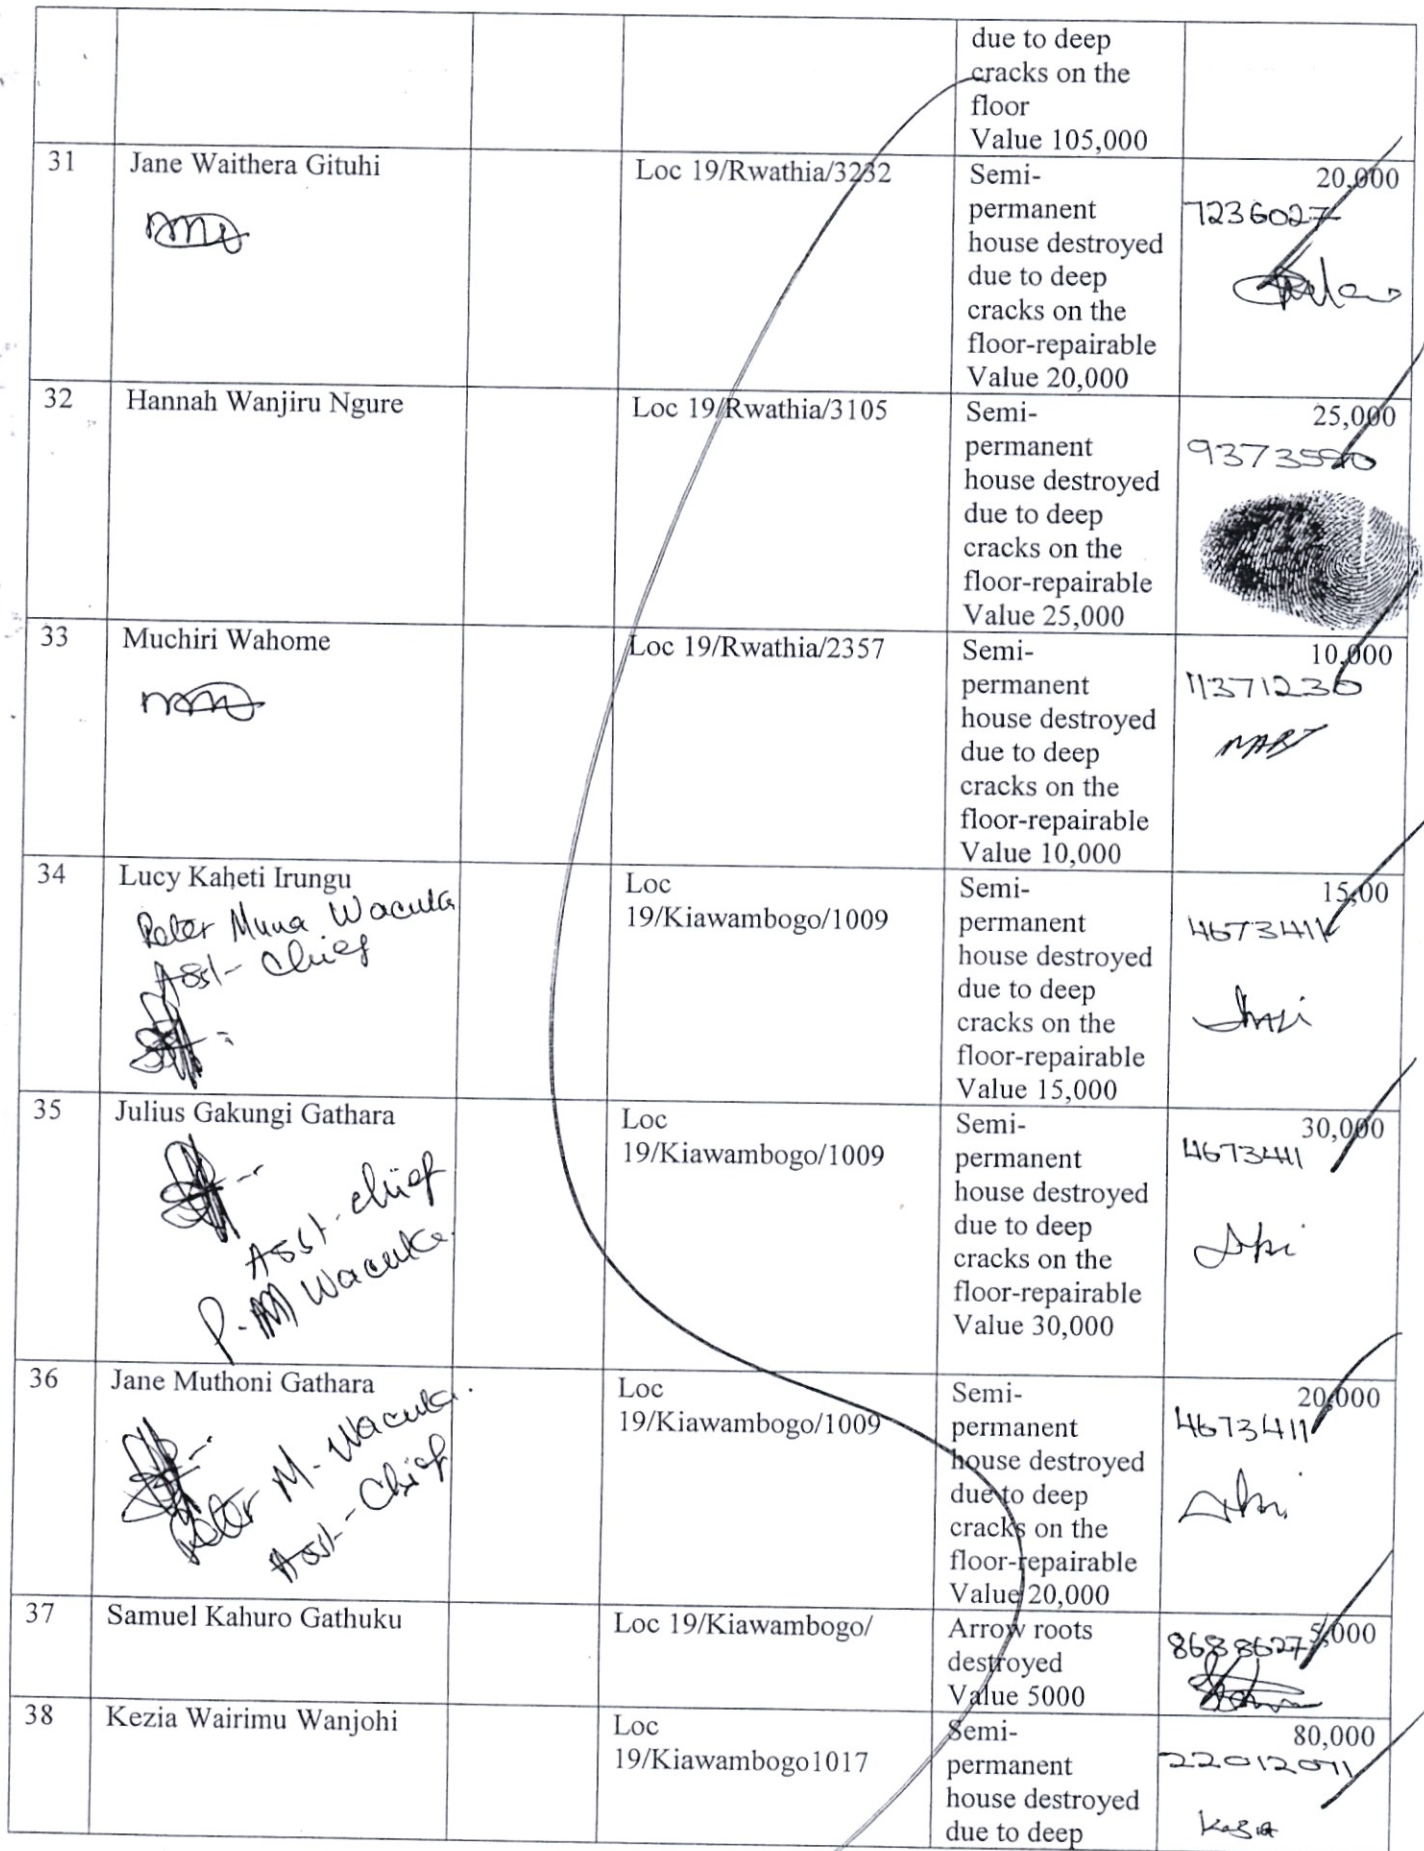 due to deep
cracks on the
floor
Value 105,000
31
Jane Waithera Gituhi
Loc 19/Rwathia/3232
Semi-
permanent
house destroyed
due to deep
cracks on the
floor-repairable
Value 20,000
20,000
7236027
32
Hannah Wanjiru Ngure
Loc 19/Rwathia/3105
Semi-
permanent
house destroyed
due to deep
cracks on the
floor-repairable
Value 25,000
25,000
33
Muchiri Wahome
Loc 19/Rwathia/2357
Semi-
permanent
house destroyed
due to deep
cracks on the
floor-repairable
Value 10,000
10,000
11371236
34
Lucy Kaheti Irungu
Peter Muna Wacuka
Asst- Chief
Loc
19/Kiawambogo/1009
Semi-
permanent
house destroyed
due to deep
cracks on the
floor-repairable
Value 15,000
15,00
4673411
35
Julius Gakungi Gathara
Asst- chief
P. M Wacuka.
Loc
19/Kiawambogo/1009
Semi-
permanent
house destroyed
due to deep
cracks on the
floor-repairable
Value 30,000
30,000
4673411
36
Jane Muthoni Gathara
Peter M. Wacuka.
Asst- Chief
Loc
19/Kiawambogo/1009
Semi-
permanent
house destroyed
due to deep
cracks on the
floor-repairable
Value 20,000
20,000
4673411
37
Samuel Kahuro Gathuku
Loc 19/Kiawambogo/
Arrow roots
destroyed
Value 5000
5,000
8688627
38
Kezia Wairimu Wanjohi
Loc
19/Kiawambogo1017
Semi-
permanent
house destroyed
due to deep
80,000
22012071